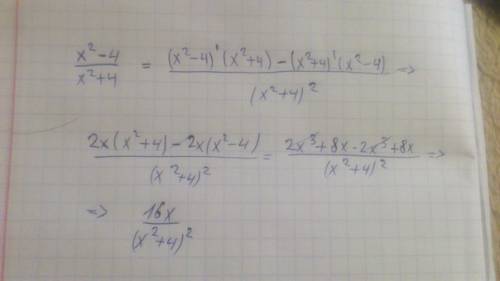 (x²-4)/(x²+4) = ((x²-4)'(x²+4) - (x²+4)'(x²-4))/(x²+4)² =>
(2x(x²+4) - 2x(x²-4))/(x²+4)² = (2x³+8x-2x³+8x)/(x²+4)² =>
=> 16x/(x²+4)²